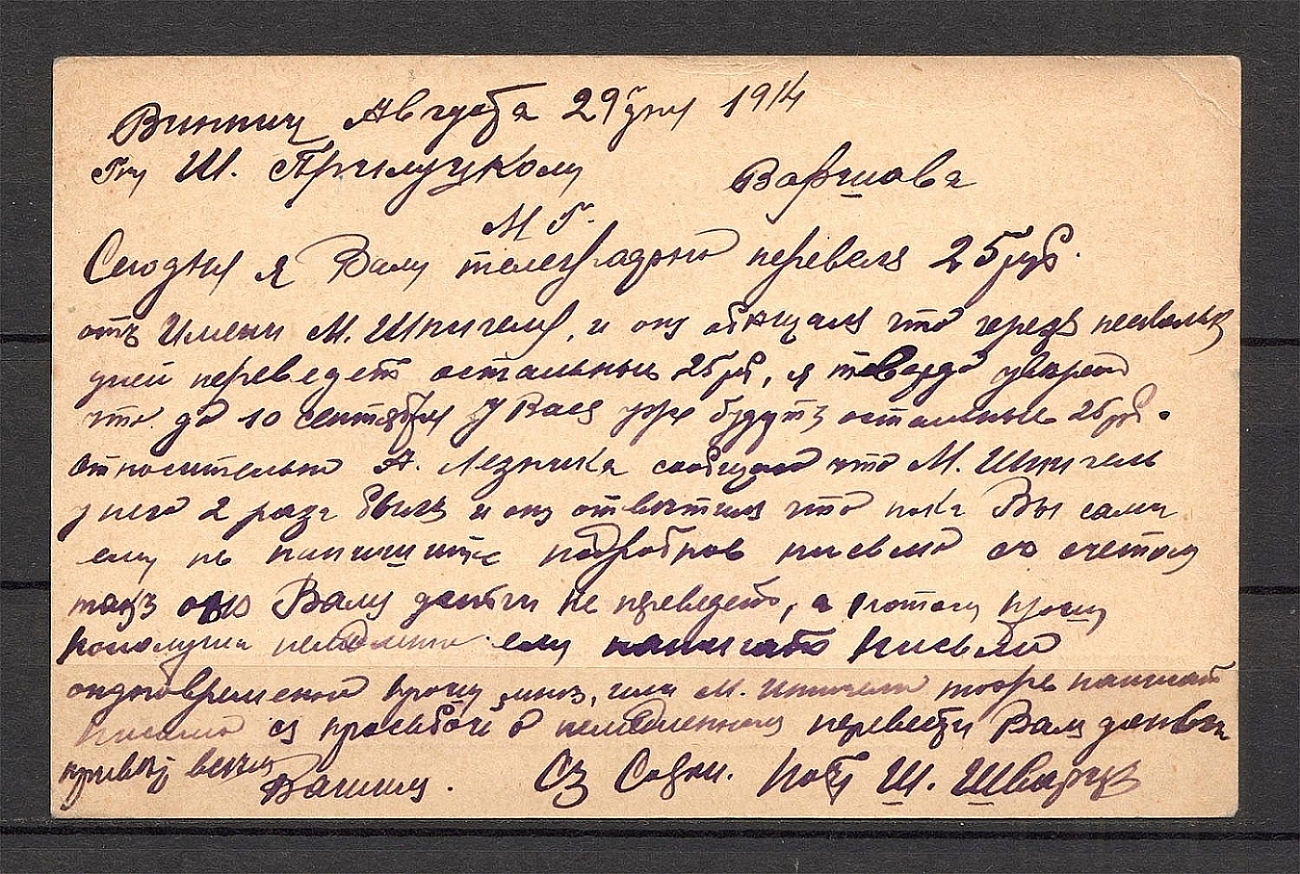 Августа 29 дня 1914
Гну Ш. Прилуцкому Варшава
М Г.
Сегодня я Вамъ телеграфно перевелъ 25 руб.
отъ Имени М. Шпигель, и онъ обещалъ что черезъ несколько
дней переведетъ остальные 25 руб, я твердо уверенъ
что до 10 сентября у Васъ уже будутъ остальные 25 руб.
относительно А. сообщаю что М. Шпигель
у него 2 раза былъ и онъ ответилъ что пока Вы сами
ему не напишите подробное письмо со счетомъ
такъ онъ Вамъ деньги не переведетъ, а потому прошу
немедленно ему написать письмо
одновременно прошу мнѣ, или М. Шпигель тоже написать
письмо съ просьбой о немедленномъ перевести Вамъ деньги
Вашимъ. Съ Почт Ш. Шварцъ